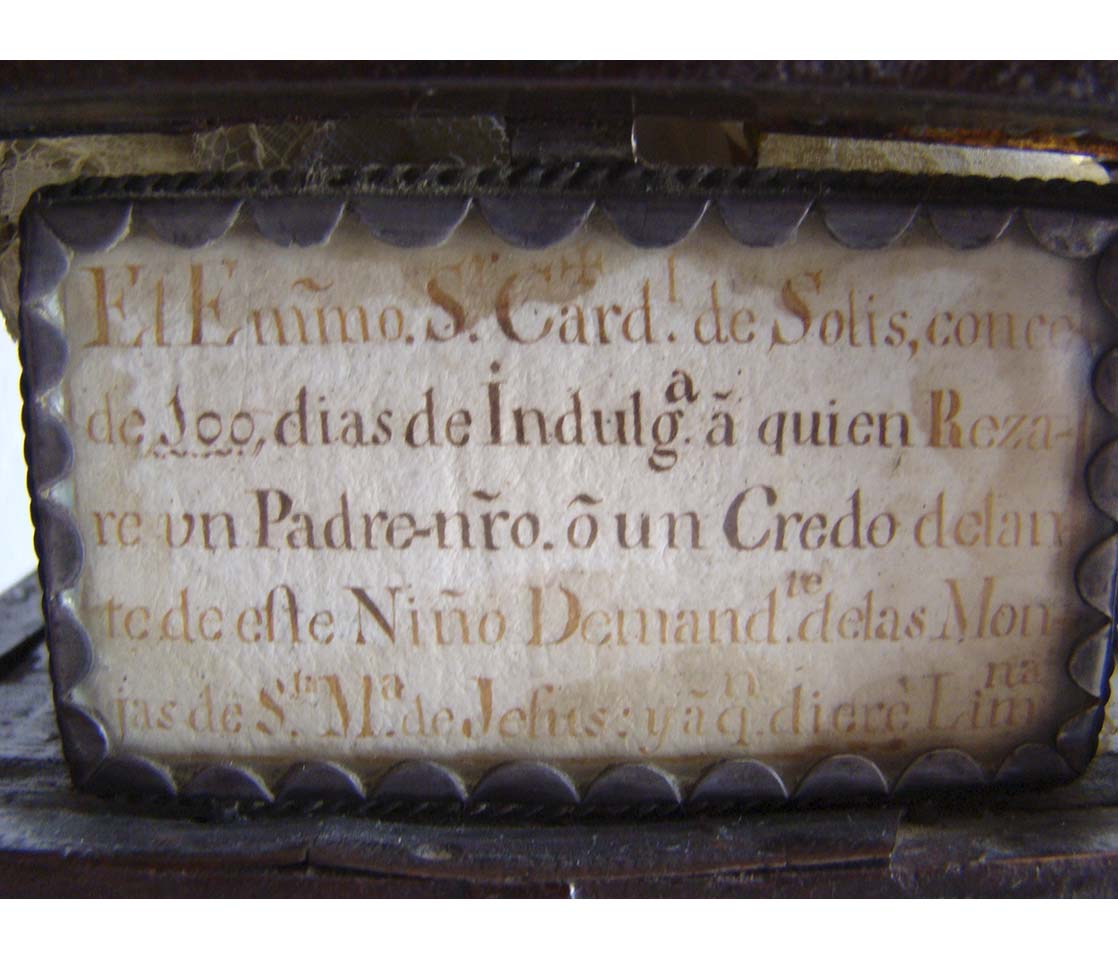 El Em̃mo. S.r Card.l de Solis, conce
de 100, dias de Indulg.a ã quien Reza-
re vn Padre-nr̃o. õ un Credo delan
te de eſte Niño Demand.te de las Mon-
jas de S.ta M.a de Jeſus: y ã q.n dierè Lim.na